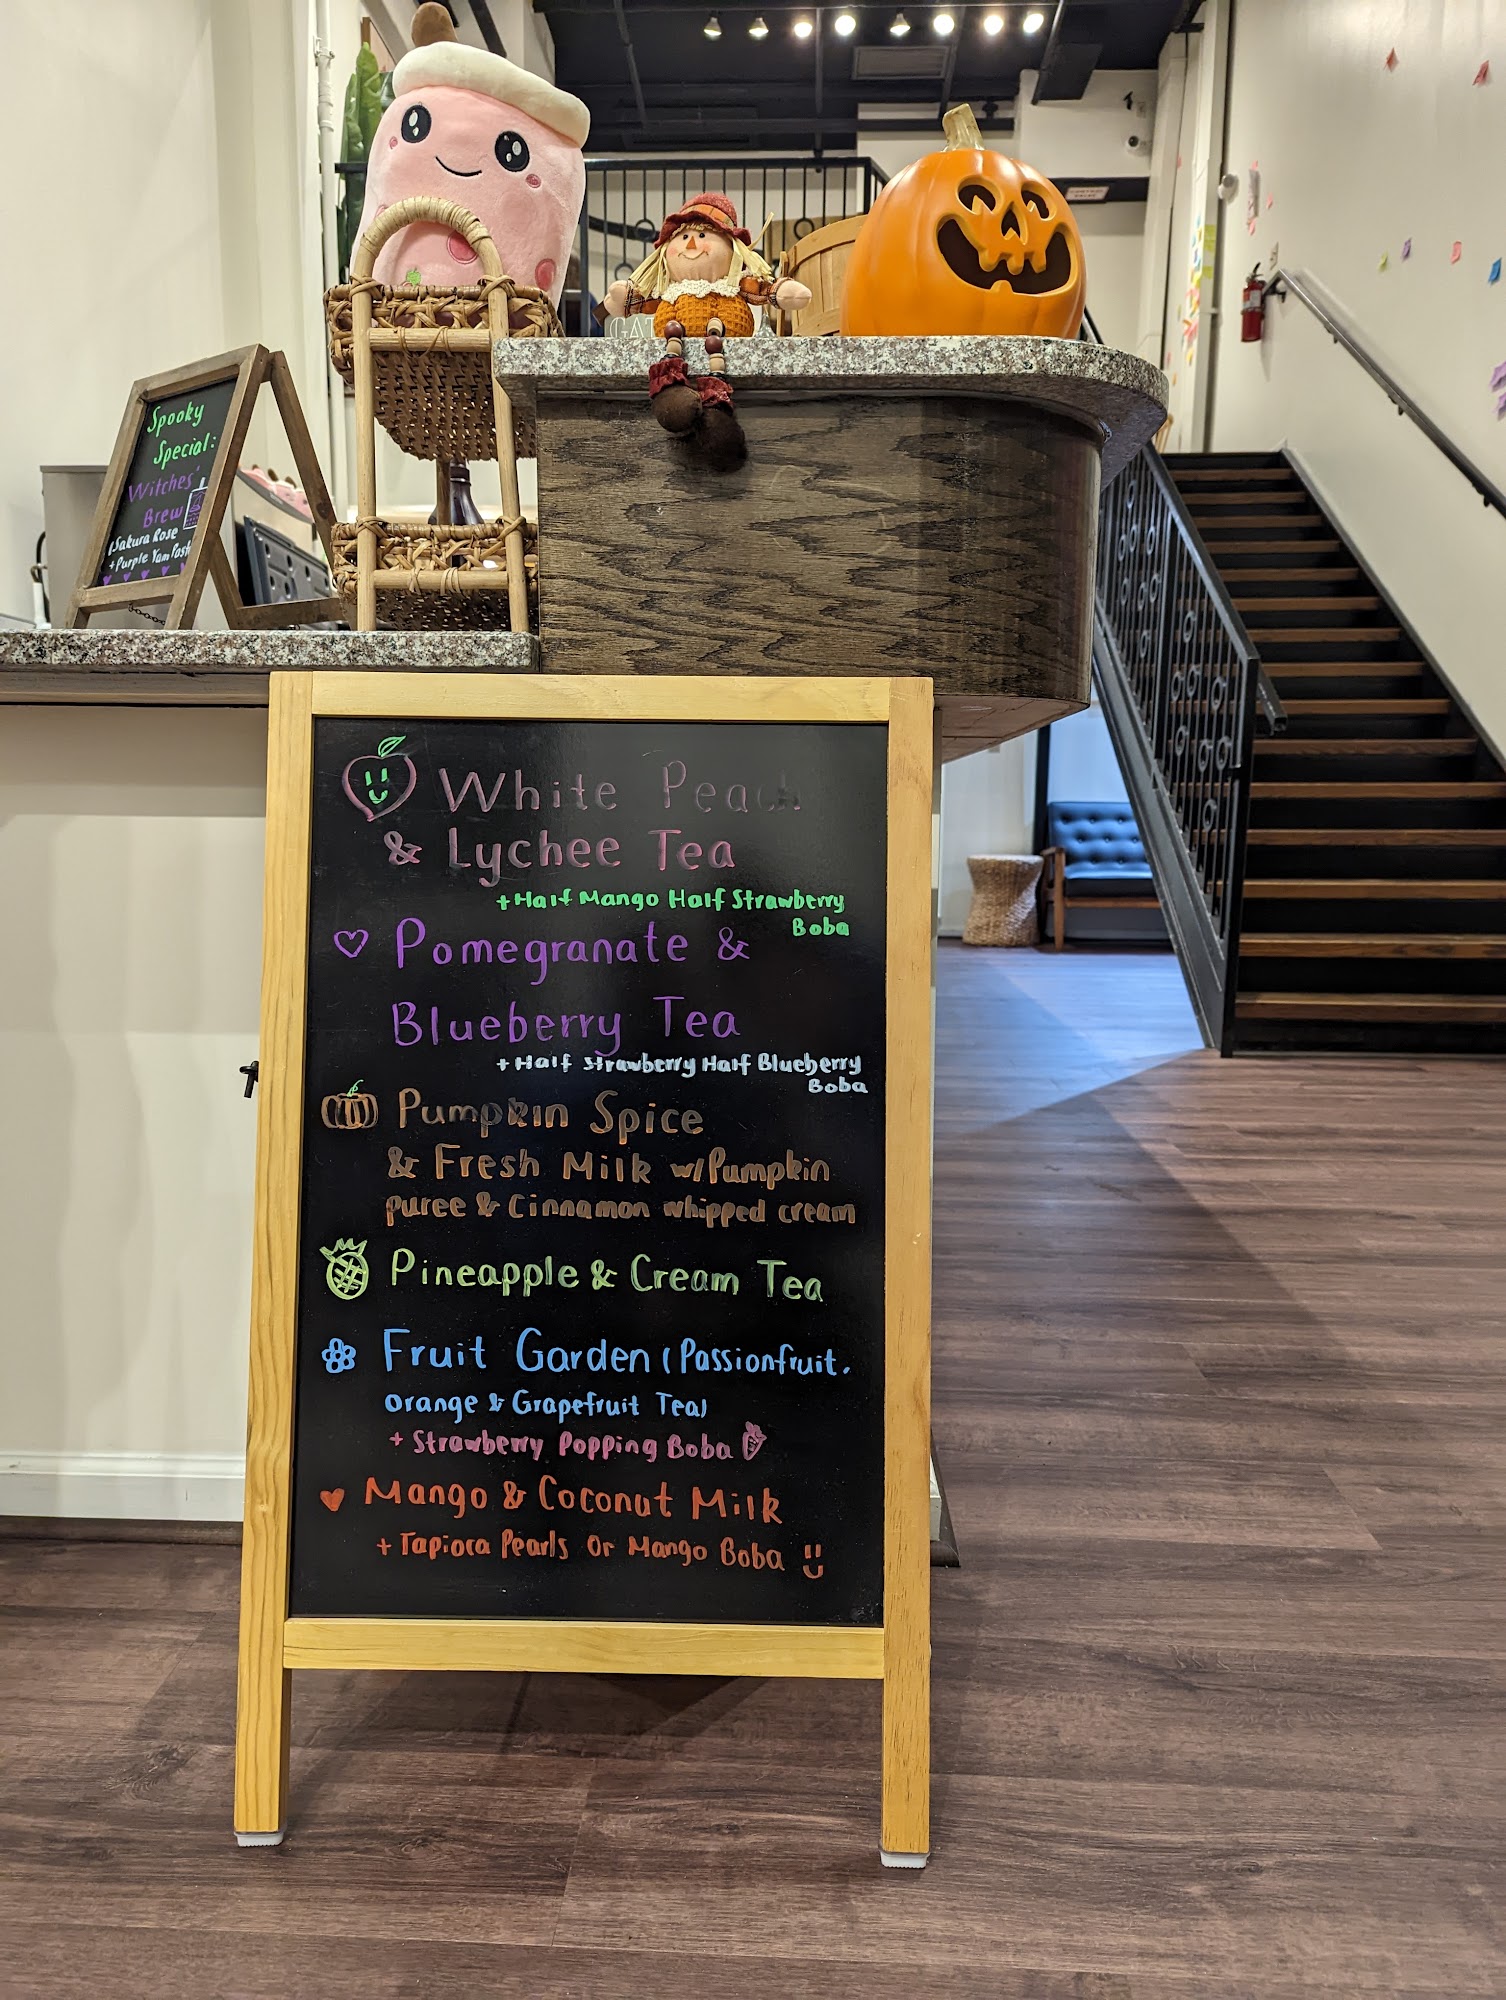 Spooky
Special:
Witches'
Brew
(Sakura Rose
+Purple Yam Paste
White Peach
& Lychee Tea
+Half Mango Half Strawberry
Boba
Pomegranate &
Blueberry Tea
+Half Strawberry Half Blueberry
Boba
Pumpkin Spice
& Fresh Milk w/Pumpkin
puree & Cinnamon whipped cream
Pineapple & Cream Tea
Fruit Garden (Passionfruit,
Orange & Grapefruit Tea)
+ Strawberry Popping Boba
Mango & Coconut Milk
+ Tapioca Pearls Or Mango Boba